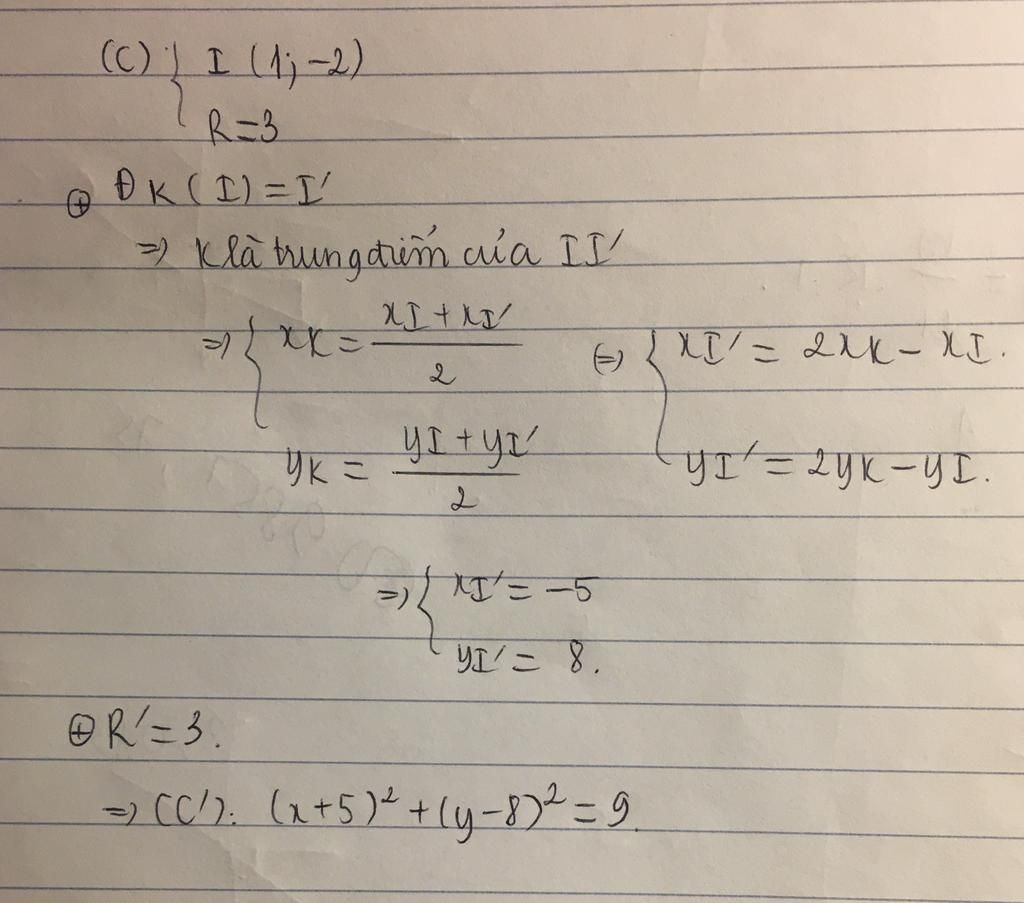 (C) { I (1; -2)
R = 3
⊕ Đ K (I) = I'
=> K là trung điểm của II'
=> { xK = (xI + xI') / 2 (=) { xI' = 2xK - xI.
yK = (yI + yI') / 2 yI' = 2yK - yI.
=> { xI' = -5
yI' = 8.
⊕ R' = 3.
=> (C'): (x+5)² + (y-8)² = 9.